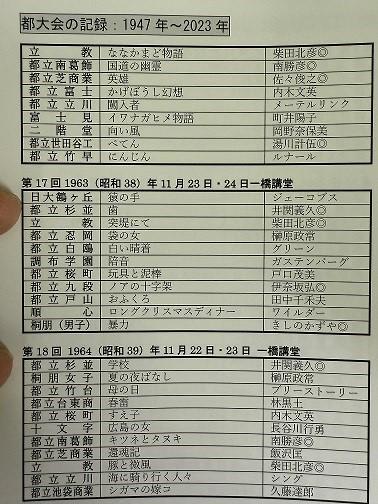 都大会の記録：1947年～2023年
立教 ななかまど物語 柴田北彦◎
都立南葛飾 国道の幽霊 南勝彦◎
都立芝商業 英雄 佐々俊之◎
都立富士 かげぼうし幻想 内木文英
都立立川 闖入者 メーテルリンク
富士見 イワナガヒメ物語 町井陽子
二階堂 向い風 岡野奈保美
都立世田谷工 ぺてん 湯川計伍◎
都立竹早 にんじん ルナール
第17回 1963（昭和38）年11月23日・24日一橋講堂
日大鶴ヶ丘 猿の手 ジェーコブス
都立杉並 歯 井関義久◎
立教 突堤にて 柴田北彦◎
都立忍岡 袋の女 榊原政常
都立白鴎 白い晴着 グリーン
調布学園 陪音 ガステンバーグ
都立桜町 玩具と泥棒 戸口茂美
都立九段 ノアの十字架 伊奈坂弘◎
都立戸山 おふくろ 田中千禾夫
順心 ロングクリスマスディナー ワイルダー
桐朋（男子） 暴力 きしのかずや◎
第18回 1964（昭和39）年11月22日・23日 一橋講堂
都立杉並 学校 井関義久◎
桐朋女子 夏の夜ばなし 榊原政常
都立竹台 母の日 プリーストーリー
都立台東商 春雷 林黒土
都立桜町 すえ子 内木文英
十文字 広島の女 長谷川行勇
都立南葛飾 キツネとタヌキ 南勝彦◎
都立芝商業 還魂記 飯沢匡
立教 豚と微風 柴田北彦◎
都立立川 海に騎り行く人々 シング
都立池袋商業 シガマの嫁コ 久藤達郎